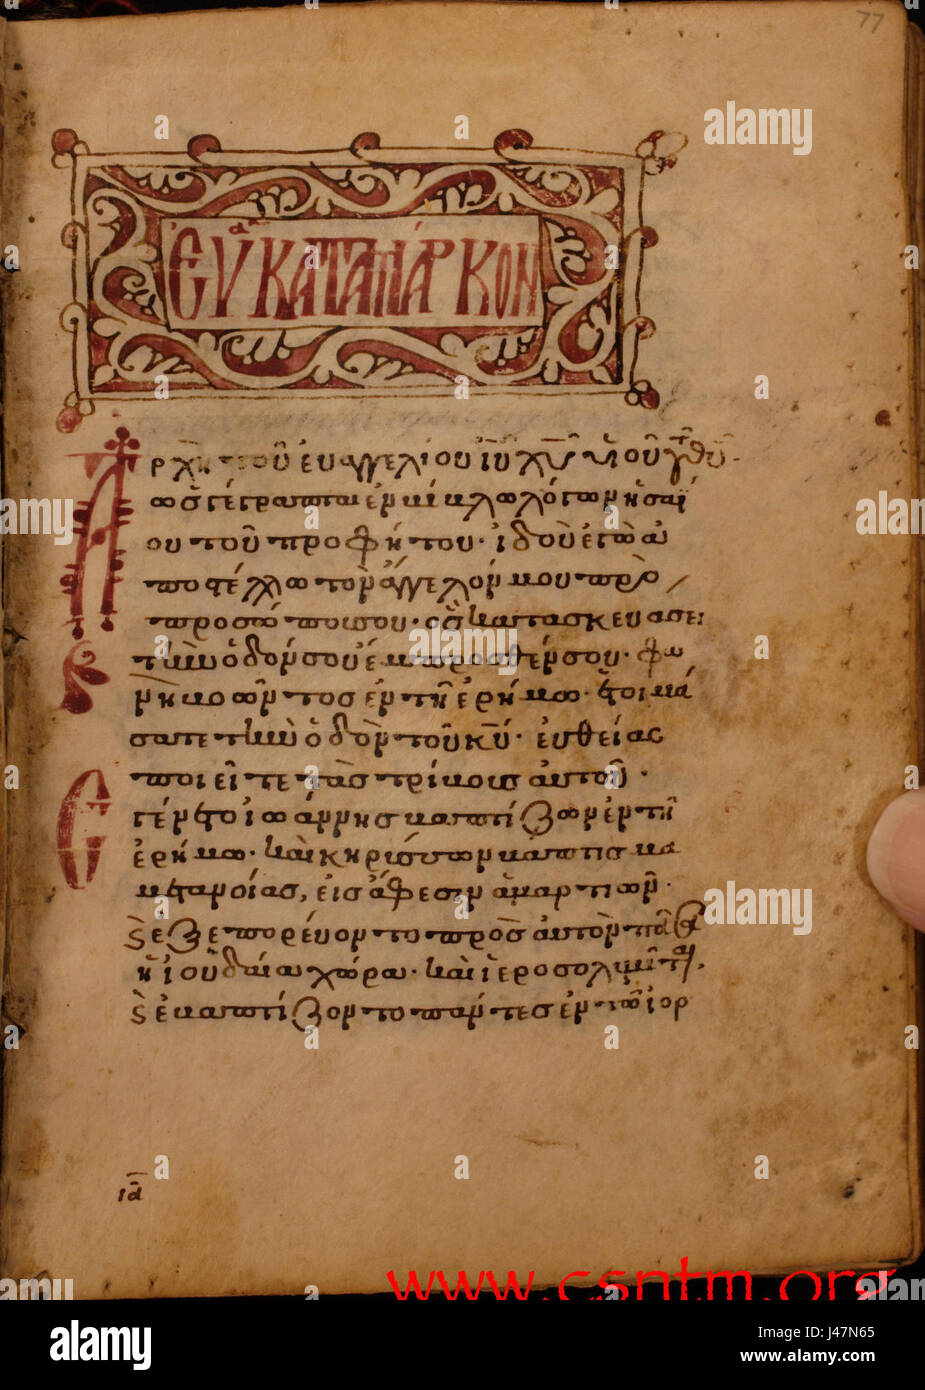 77
ΕΥΑ ΚΑΤΑ ΜΑΡΚΟΝ
Αρχὴ τοῦ ευαγγελίου ιυ χυ υἱοῦ του θυ.
ως γέγραπται ἐν βιβλω λόγων ησαϊ
ου τοῦ προφήτου· ἰδοὺ ἐγὼ ἀ
ποστέλλω τὸν ἄγγελόν μου πρὸ
προσώπου σου· ὃς κατασκευάσει
τὴν ὁδόν σου ἔμπροσθέν σου· Φω
νὴ βοῶντος ἐν τῆ ἐρήμω· ἑτοιμά
σατε τὴν ὁδὸν κυ· εὐθείας
ποιεῖτε τὰς τρίβους αὐτοῦ·
Εγένετο ἰωάννης βαπτίζων ἐν τῆ
ἐρήμω· καὶ κηρύσσων βάπτισμα
μετανοίας, εἰς ἄφεσιν ἁμαρτιῶν·
καὶ ἐξεπορεύοντο πρὸς ἀυτὸν πᾶσα
ἡ ἰουδαία χώρα· καὶ ἱεροσολυμῖται,
καὶ ἐβαπτίζοντο πάντες ἐν τῶ ἰορ
ια
www.csntm.org
alamy
Image ID: J47N65
www.alamy.com